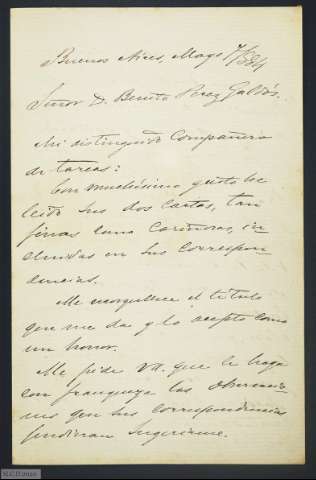 Buenos Aires, Mayo 7/884
Señor D. Benito Perez Galdós.
Mi distinguido Compañero
de tareas:
Con muchísimo gusto he
leido sus dos Cartas, tan
finas como Cariñosas, in
cluidas en sus Correspon
dencias.
Me enorgullece el título
que me da y lo acepto como
un honor.
Me pide Vd. que le haga
con franqueza las observacio
nes que sus correspondencias
pudieran sugerirme.